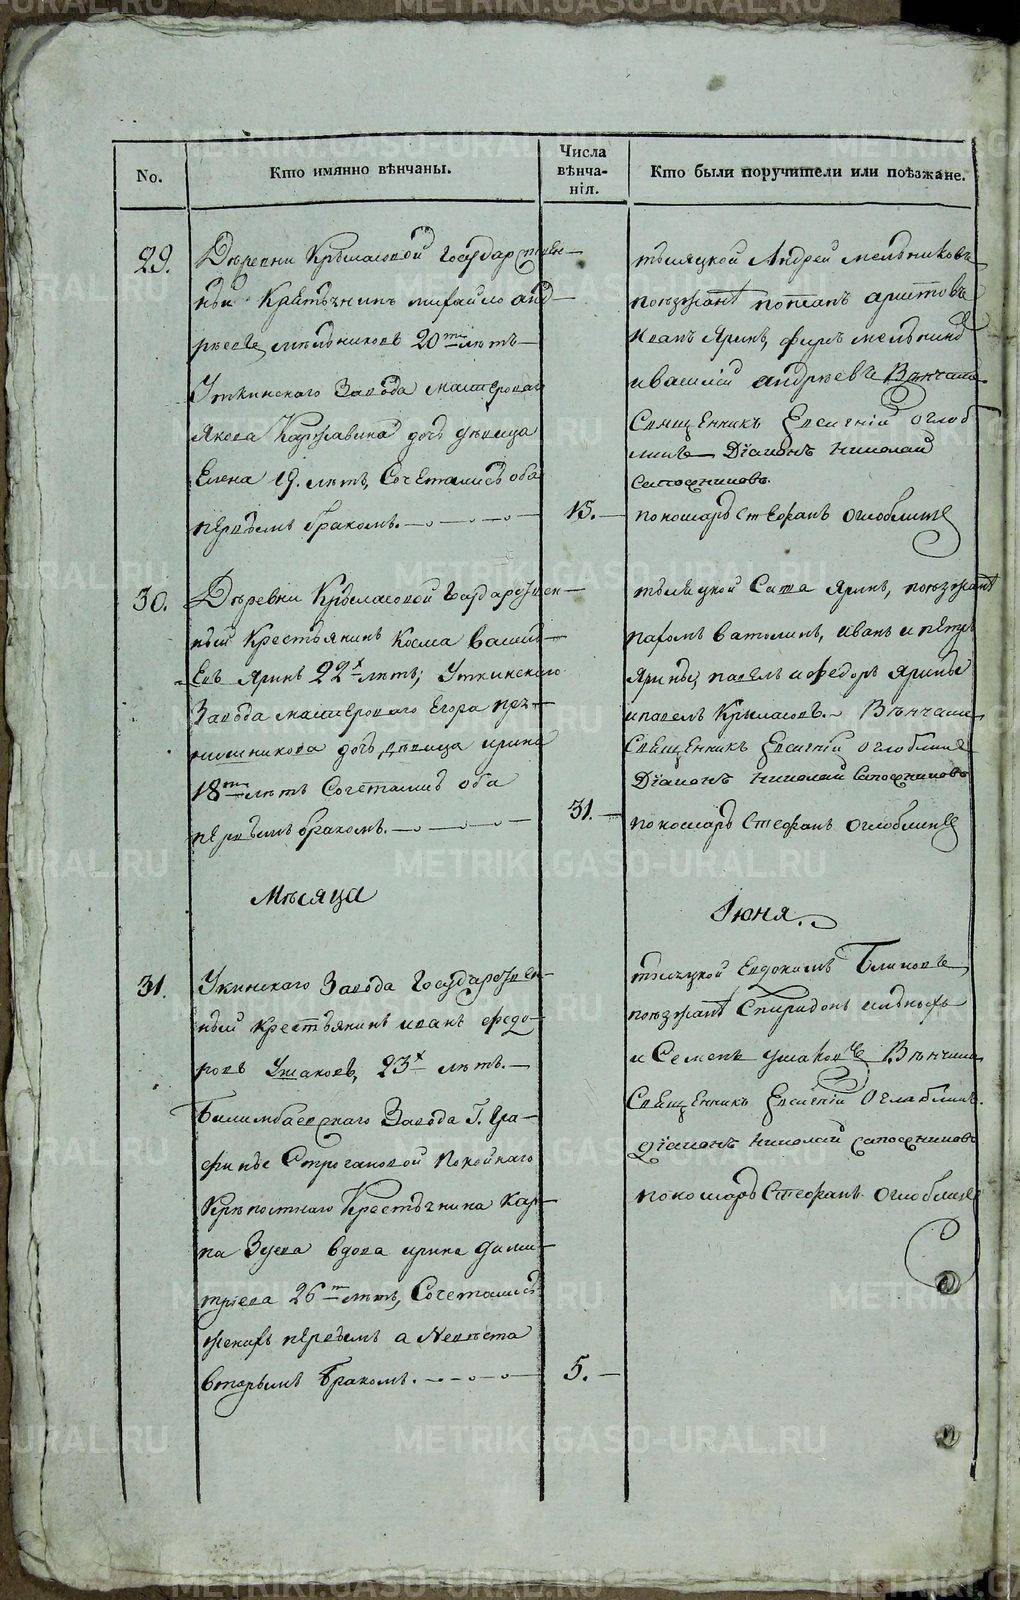 No.
Кто имянно вѣнчаны.
Числа
вѣнча-
нія.
Кто были поручители или поѣзжане.
29.
Деревни Крыласовой Государствен-
ный Крестьянинъ михайло анд-
реевъ мельниковъ 20 ти лѣтъ-
Уткинскаго Завода мастероваго
Якова Каржавина дочь девица
Елена 19. лѣтъ, Сочетались оба
первымъ бракомъ.
15.
тысяцкой Андрей мельниковъ
поезжанѣ потапъ
Иванъ Яринъ,
ивасилий андреевъ Венчали
Священникъ Евсигній Оглоб
линъ Діаконъ николай
сапожниковъ.
пономарь Стефанъ оглоблинъ
30.
Деревни Крыласовой Государствен-
ный Крестьянинъ Козма Василь-
евъ Яринъ 22 х лѣтъ; Уткинскаго
Завода мастероваго Егора
дочь, девица ирина
18 ти лѣтъ Сочетались оба
первымъ бракомъ.
31.
тысяцкой Савва Яринъ, поезжанѣ
пахомъ ватолинъ, иванъ и петръ
Ярины, павелъ и федоръ Ярины
ипавелъ Крыласовъ. Венчали
Священникъ Евсигній оглоблинъ
Діаконъ николай Сапожниковъ
пономарь Стефанъ оглоблинъ
Мѣсяца
Іюня.
31.
Укинскаго Завода Государствен-
ный крестьянинъ иванъ федо-
ровъ Ушаковъ, 23 х лѣтъ.
Билимбаевскаго Завода Г. Гра-
фини Строгановой покойнаго
Крепостнаго Крестьянина Кар-
па Зуева вдова ирина дими-
триева 26 ти лѣтъ, Сочетались
женихъ первымъ а Невѣста
вторымъ бракомъ.
5.
тысяцкой Евдокимъ Блиновъ
поезжанѣ Спиридонъ
и Семенъ ушаковъ Венчали
Священникъ Евсигній Оглаблинъ.
діаконъ николай сапожниковъ
пономарь Стефанъ Оглоблинъ
METRIKI.GASO-URAL.RU